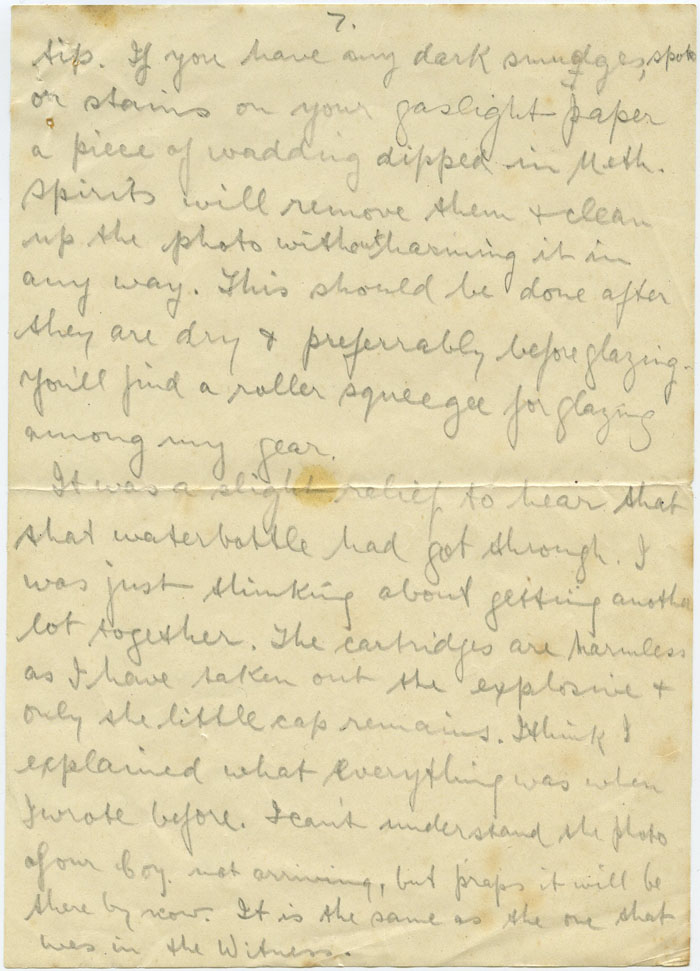 7.
tip. If you have any dark smudges, spots
or stains on your gaslight paper
a piece of wadding dipped in Meth.
Spirits will remove them & clean
up the photo without harming it in
any way. This should be done after
they are dry & preferrably before glazing.
You'll find a roller squeegee for glazing
among my gear.
It was a slight relief to hear that
that waterbottle had got through. I
was just thinking about getting another
lot together. The cartridges are harmless
as I have taken out the explosive &
only the little cap remains. I think I
explained what everything was when
I wrote before. I can't understand the photo
of our Coy. not arriving, but p'raps it will be
there by now. It is the same as the one that
was in the Witness.